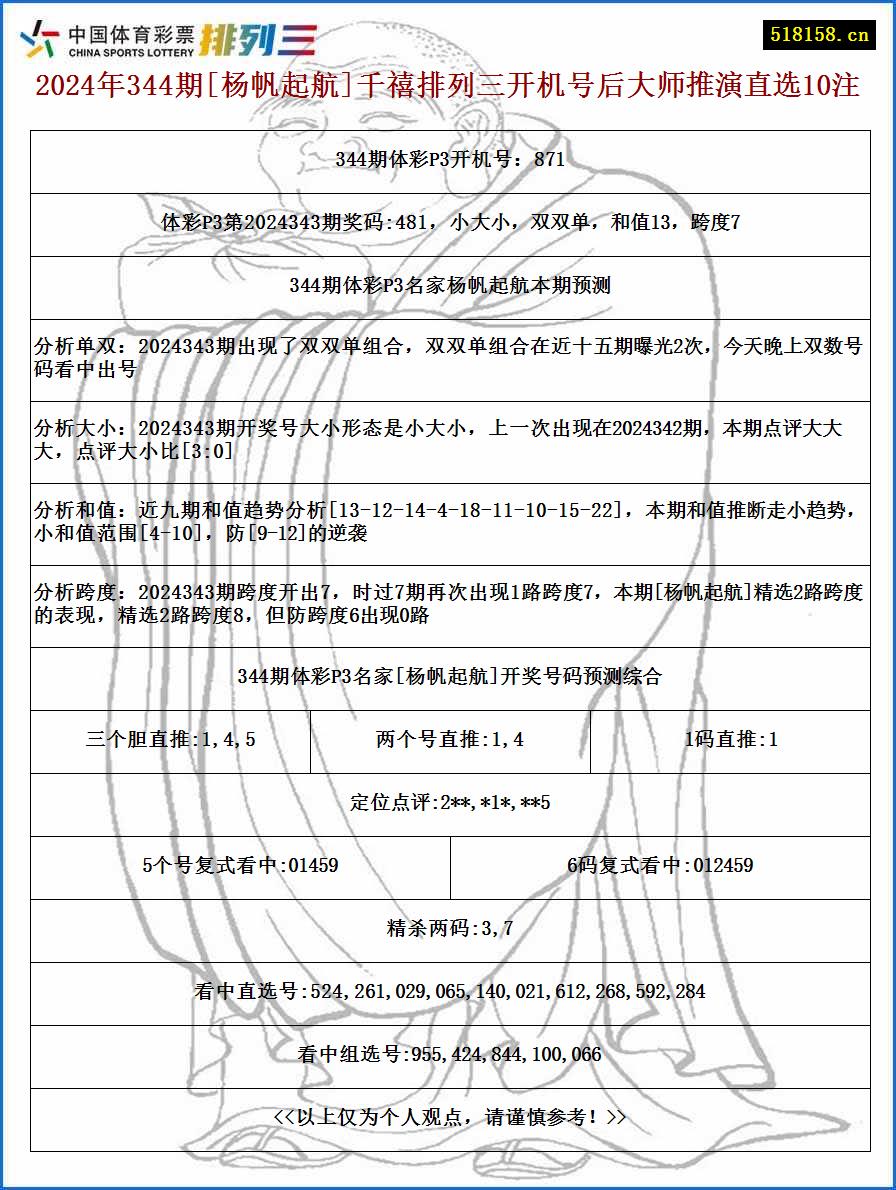 中国体育彩票
CHINA SPORTS LOTTERY
排列三
518158.cn
2024年344期[杨帆起航]千禧排列三开机号后大师推演直选10注
344期体彩P3开机号：871
体彩P3第2024343期奖码:481，小大小，双双单，和值13，跨度7
344期体彩P3名家杨帆起航本期预测
分析单双：2024343期出现了双双单组合，双双单组合在近十五期曝光2次，今天晚上双数号
码看中出号
分析大小：2024343期开奖号大小形态是小大小，上一次出现在2024342期，本期点评大大
大，点评大小比[3:0]
分析和值：近九期和值趋势分析[13-12-14-4-18-11-10-15-22]，本期和值推断走小趋势，
小和值范围[4-10]，防[9-12]的逆袭
分析跨度：2024343期跨度开出7，时过7期再次出现1路跨度7，本期[杨帆起航]精选2路跨度
的表现，精选2路跨度8，但防跨度6出现0路
344期体彩P3名家[杨帆起航]开奖号码预测综合
三个胆直推:1,4,5
两个号直推:1,4
1码直推:1
定位点评:2**,*1*,**5
5个号复式看中:01459
6码复式看中:012459
精杀两码:3,7
看中直选号:524,261,029,065,140,021,612,268,592,284
看中组选号:955,424,844,100,066
<<以上仅为个人观点，请谨慎参考！>>